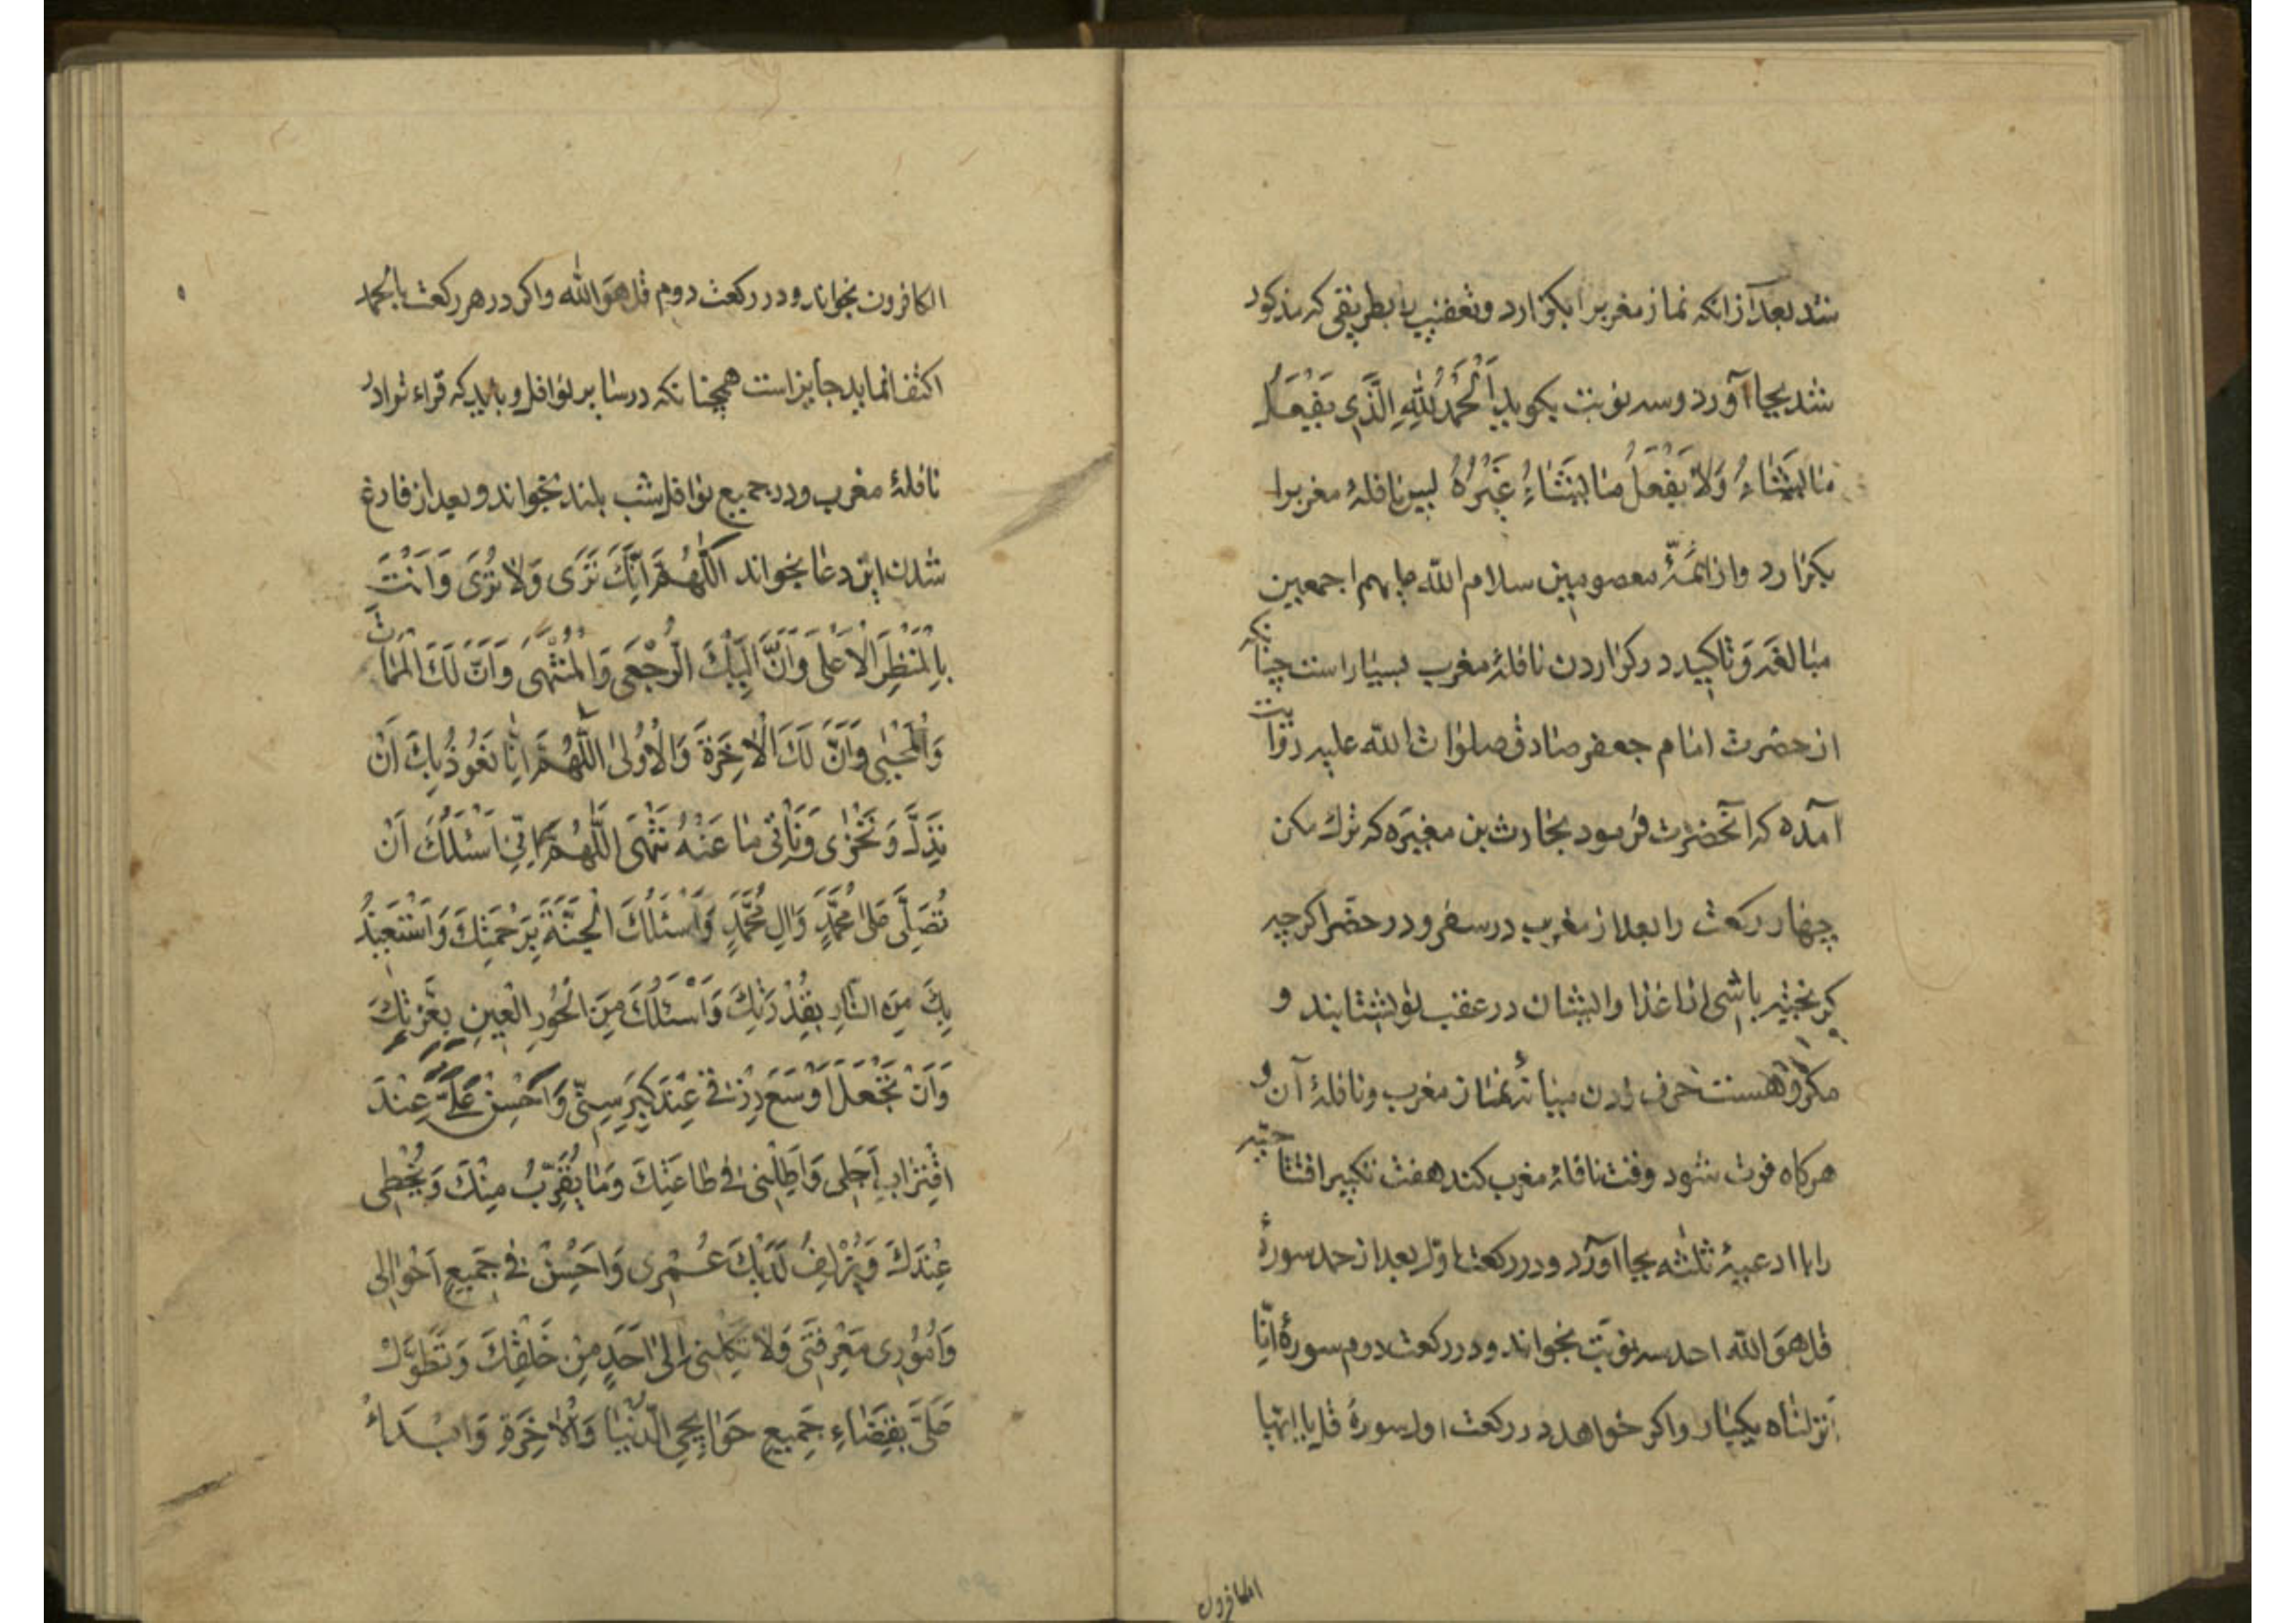 شد بعد از انکه نماز مغربرا بکزارد و تعقیب را بطریقی که مذکور
شد بجا آورد و سه نوبت بکوید اَلْحَمْدُ لِلّٰهِ الَّذی یَفْعَلُ
مٰا یَشٰاءُ وَلاٰ یَفْعَلُ مٰا یَشٰاءُ غَیْرُهُ پس نافلهٔ مغربرا
بکزارد و از ائمّهٔ معصومین سلام الله علیهم اجمعین
مبالغه و تاکید در کزاردن نافلهٔ مغرب بسیار است چنانکه
از حضرت امام جعفر صادق صلوات الله علیه روایت
آمده که آنحضرت فرمود بحارث بن مغیره که ترك مکن
چهار رکعت را بعد از مغرب در سفر و در حضر اکرچه
کریخته باشی اعدا و ایشان در عقب تو بشتابند و
مکروهست حرف زدن میانهٔ نماز مغرب و نافلهٔ آن و
هرکاه فوت شود وقت نافلهٔ مغرب کند هفت تکبیر افتتاحیه
را با ادعیهٔ ثلثه بجا آورد و در رکعت اول بعد از حمد سورهٔ
قل هو الله احد سه نوبت بخواند و در رکعت دوم سورهٔ انّا
انزلناه یکبار و اکر خواهد در رکعت اول سورهٔ قل یا ایها
الکافرون
الکافرون بخواند و در رکعت دوم قل هو الله و اکر در هر رکعت بالحمد
اکتفا نماید جایز است همچنانکه در سایر نوافل و باید که قراءت را در
نافلهٔ مغرب و در جمیع نوافل شب بلند بخواند و بعد از فارغ
شدن این دعا بخواند اَللّٰهُمَّ اِنَّكَ تَرٰی وَلاٰ تُرٰی وَاَنْتَ
بِالْمَنْظَرِ الْاَعْلٰی وَاَنَّ اِلَیْكَ الرُّجْعٰی وَالْمُنْتَهٰی وَاَنَّ لَكَ الْمَمٰاتَ
وَالْمَحْیٰی وَاَنَّ لَكَ الْاٰخِرَةَ وَالْاُولٰی اللّٰهُمَّ اِنّٰا نَعُوذُ بِكَ اَنْ
نَذِلَّ وَنَخْزٰی وَنَأْتِیَ مٰا عَنْهُ تَنْهٰی اَللّٰهُمَّ اِنّی اَسْئَلُكَ اَنْ
تُصَلِّیَ عَلٰی مُحَمَّدٍ وَاٰلِ مُحَمَّدٍ وَاَسْئَلُكَ الْجَنَّةَ بِرَحْمَتِكَ وَاَسْتَعیذُ
بِكَ مِنَ النّٰارِ بِقُدْرَتِكَ وَاَسْئَلُكَ مِنَ الْحُورِ الْعینِ بِعِزَّتِكَ
وَاَنْ تَجْعَلَ اَوْسَعَ رِزْقی عِنْدَ کِبَرِ سِنّی وَاَحْسَنَ عَمَلی عِنْدَ
اقْتِرٰابِ اَجَلی وَاَطِلْ فی طٰاعَتِكَ وَمٰا یُقَرِّبُ مِنْكَ وَیُحْظی
عِنْدَكَ وَیُزْلِفُ لَدَیْكَ عُمْری وَاَحْسِنْ فی جَمیعِ اَحْوٰالی
وَاُمُوری مَعْرِفَتی وَلاٰ تَکِلْنی اِلٰی اَحَدٍ مِنْ خَلْقِكَ وَتَطَوَّلْ
عَلَیَّ بِقَضٰاءِ جَمیعِ حَوٰایِجی الدُّنْیٰا وَالْاٰخِرَةِ وَابْدَاْ